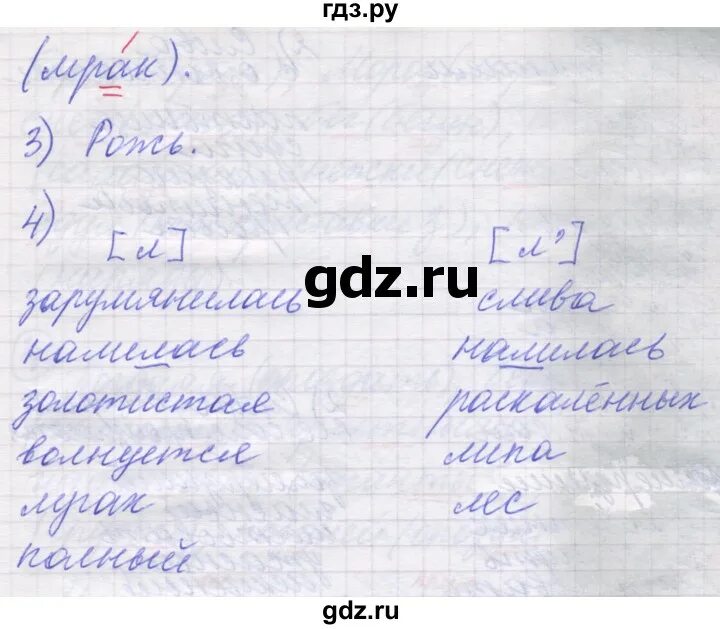 гдз.ру
(мрак).
3) Рожь.
4)
[л] [л']
gdz.ru
зарумянилась слива
налилась налилась
золотистая раскалённых
волнуется липа
лугах лес
полный
gdz.ru